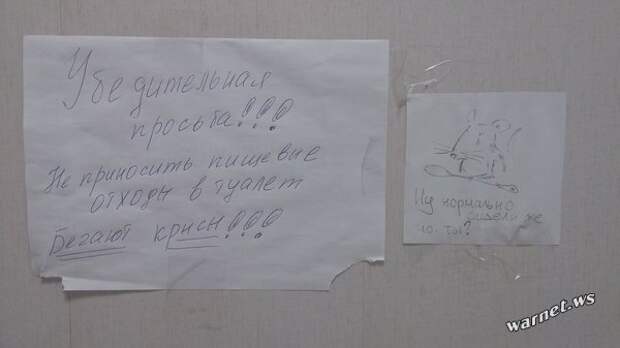 Убедительная
просьба!!!
Не приносить пищевые
отходы в туалет
Бегают крысы!!!
Ну нормально
сидели же
ю. ты?
warnet.ws